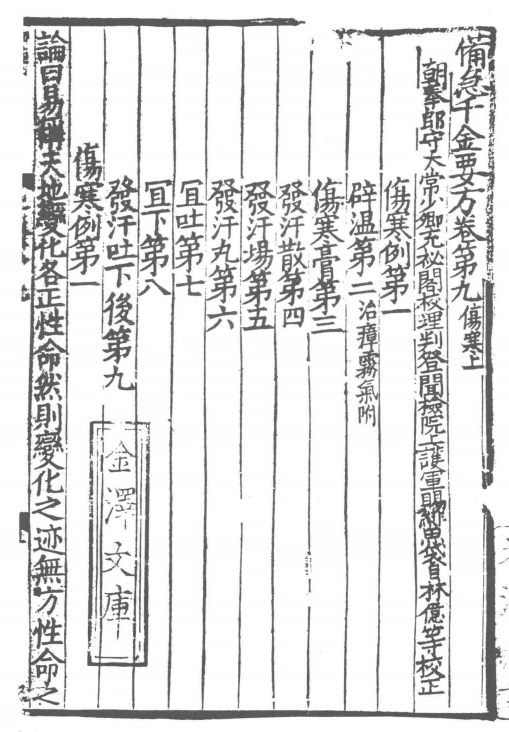 備急千金要方卷第九 傷寒上
朝奉郎守太常少卿充祕閣校理判登聞檢院上護軍賜緋魚袋臣林億等校正
傷寒例第一
辟温第二 治瘴霧氣附
傷寒膏第三
發汗散第四
發汗湯第五
發汗丸第六
宜吐第七
宜下第八
發汗吐下後第九
傷寒例第一
論曰易稱天地變化各正性命然則變化之迹無方性命之
金澤文庫